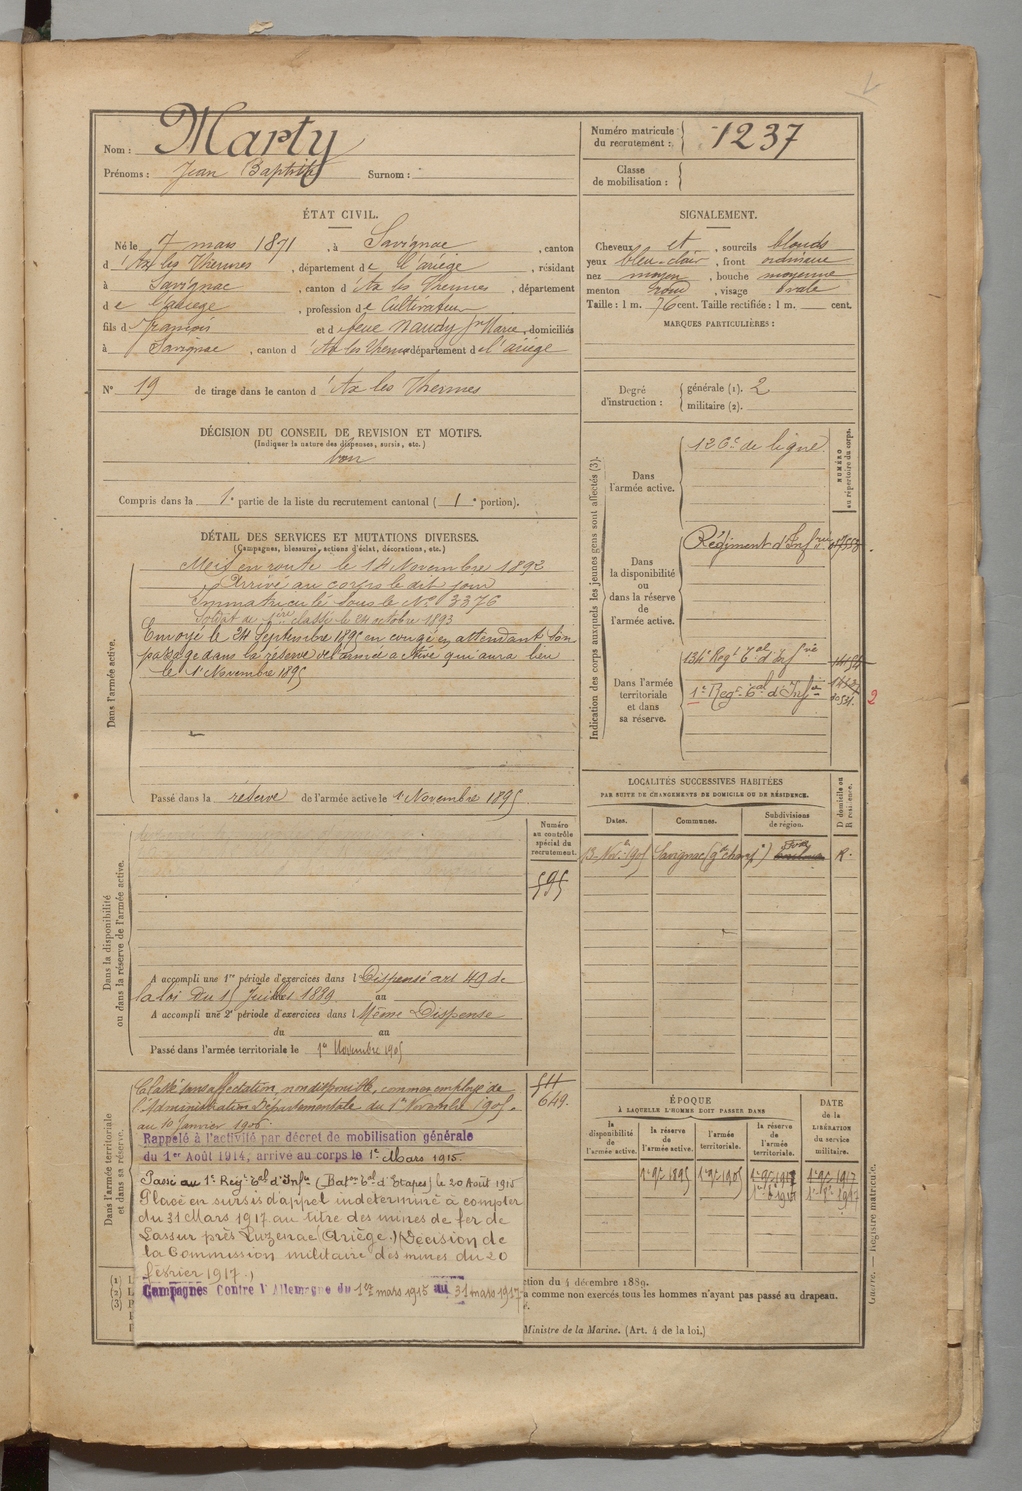 Nom : Marty
Prénoms : Jean Baptiste Surnom :
Numéro matricule du recrutement : 1237
Classe de mobilisation :
ÉTAT CIVIL.
Né le 7 mars 1871, à Savignac, canton
d'Ax les Thermes, département de l'ariège, résidant
à Savignac, canton d'Ax les Thermes, département
de l'ariège, profession de Cultivateur
fils de françois et de feue Naudy Jne Marie, domiciliés
à Savignac, canton d'Ax les Thermes département de l'ariège
N° 19 de tirage dans le canton d'Ax les Thermes
DÉCISION DU CONSEIL DE REVISION ET MOTIFS.
(Indiquer la nature des dispenses, sursis, etc.)
bon
Compris dans la 1e partie de la liste du recrutement cantonal (1e portion).
SIGNALEMENT.
Cheveux et, sourcils blonds
yeux bleu-clair, front ordinaire
nez moyen, bouche moyenne
menton rond, visage ovale
Taille : 1 m. 76 cent. Taille rectifiée : 1 m. cent.
MARQUES PARTICULIÈRES :
Degré d'instruction : générale (1). 2
militaire (2).
DÉTAIL DES SERVICES ET MUTATIONS DIVERSES.
(Campagnes, blessures, actions d'éclat, décorations, etc.)
Dans l'armée active.
Mis en route le 14 Novembre 1892
Arrivé au corps le dit jour
Immatriculé sous le No 3376
Soldat de 1ère classe le 24 octobre 1893
Envoyé le 24 Septembre 1895 en congé en attendant son
passage dans la réserve de l'armée active qui aura lieu
le 1er Novembre 1895
Passé dans la réserve de l'armée active le 1er Novembre 1895
Indication des corps auxquels les jeunes gens sont affectés (3).
NUMÉRO au répertoire du corps.
Dans l'armée active.
126e de ligne
Dans la disponibilité ou dans la réserve de l'armée active.
Régiment d'Infrie
Dans l'armée territoriale et dans sa réserve.
134e Regt Tal d'Infrie
1er Regt Tal d'Infie
2
LOCALITÉS SUCCESSIVES HABITÉES
PAR SUITE DE CHANGEMENTS DE DOMICILE OU DE RÉSIDENCE.
Dates. Communes. Subdivisions de région. D domicile ou R résidence.
13 Nov. 1905 Savignac Foix R.
Dans la disponibilité ou dans la réserve de l'armée active.
Numéro au contrôle spécial du recrutement.
595
A accompli une 1re période d'exercices dans l Dispensé art 49 de
la loi du 15 Juillet 1889 au
A accompli une 2e période d'exercices dans l Même Dispense
du au
Passé dans l'armée territoriale le 1er Novembre 1905
Dans l'armée territoriale et dans sa réserve.
Classé sans affectation, non disponible, comme employé de
l'Administration Départementale du 1er Novembre 1905
au 10 Janvier 1906.
511
649.
Rappelé à l'activité par décret de mobilisation générale
du 1er Août 1914, arrivé au corps le 1er Mars 1915.
Passé au 1er Regt Tal d'Infie (Baton Tal d'Etapes) le 20 Août 1915
Placé en sursis d'appel indéterminé à compter
du 31 Mars 1917 au titre des mines de fer de
Lassur près Luzenac (Ariège.) (Décision de
la Commission militaire des mines du 20
février 1917.)
Campagnes Contre l'Allemagne du 1er mars 1915 au 31 mars 1917
ÉPOQUE
À LAQUELLE L'HOMME DOIT PASSER DANS
la disponibilité de l'armée active. la réserve de l'armée active. l'armée territoriale. la réserve de l'armée territoriale.
DATE de la LIBÉRATION du service militaire.
ction du 4 décembre 1889.
a comme non exercés tous les hommes n'ayant pas passé au drapeau.
Ministre de la Marine. (Art. 4 de la loi.)
Guerre. — Registre matricule.